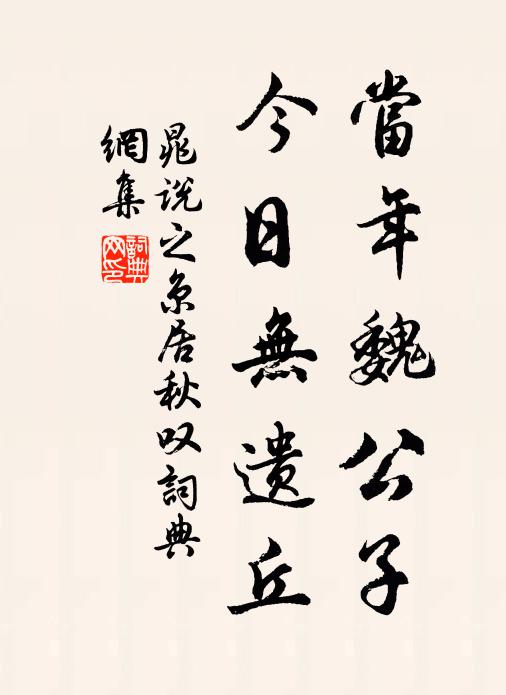 當年魏公子
今日無遺丘
晁說之京居秋叹詞典
網集
詞典
网印